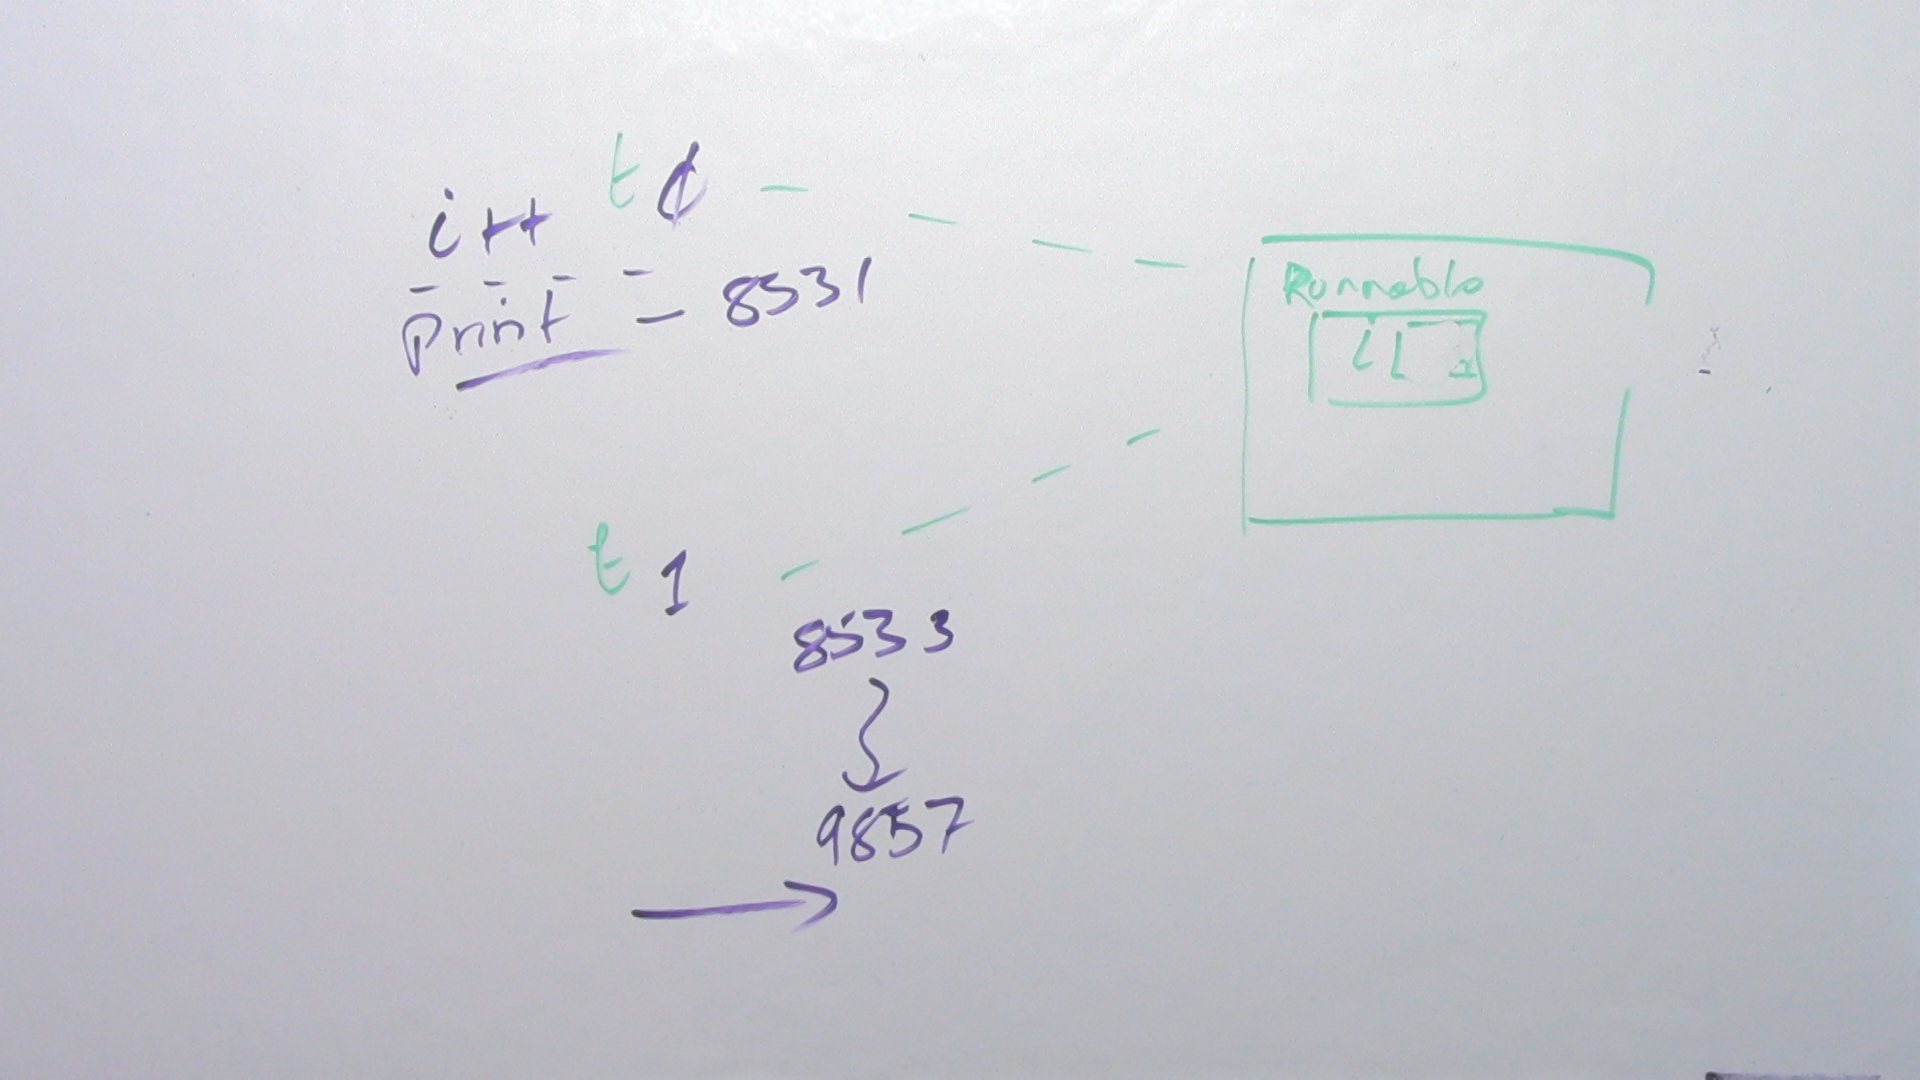 t0
i++
print - 8531
Runnable
t1
8533
9857